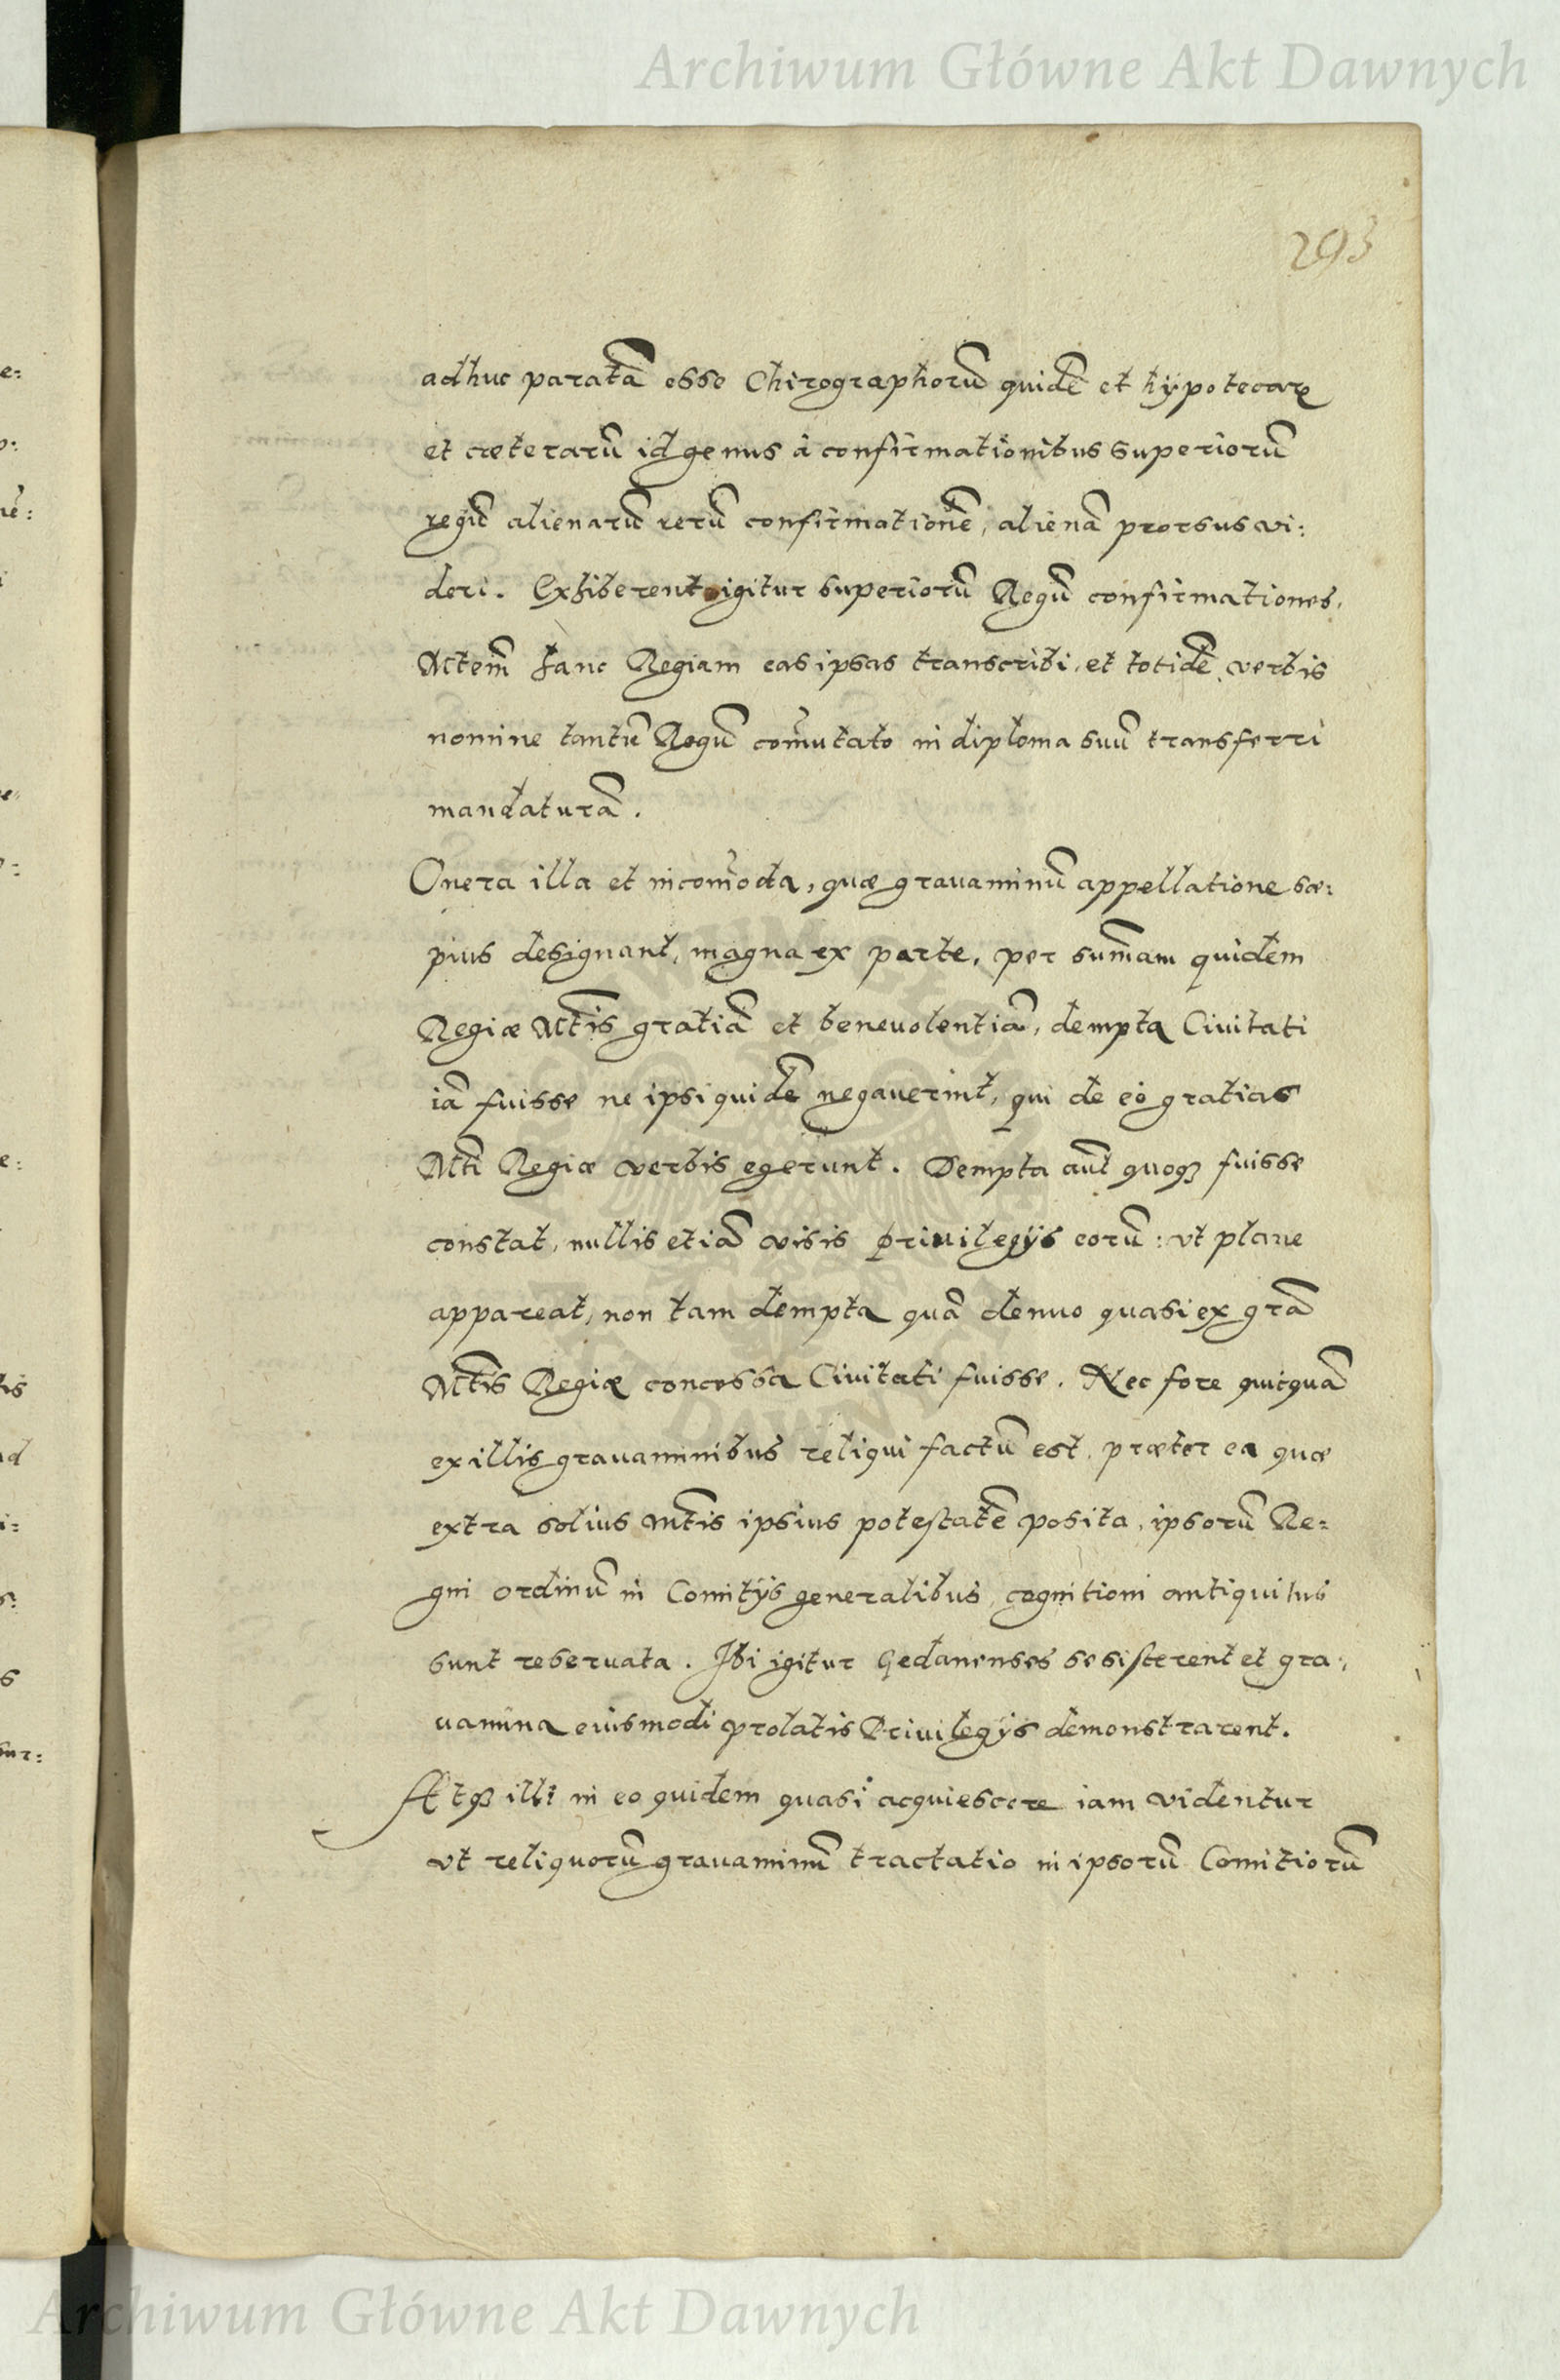 Archiwum Główne Akt Dawnych
293
adhuc paratā esse Chirographorū quidē et hÿpotecarꝝ
et cæterarū id genus à confirmationibus superiorū
regū alienarū rerū confirmationē, alienā prorsus vi:
deri. Exhiberent igitur superiorū Regū confirmationes,
Mtem̄ hanc Regiam eas ipsas transcribi, et totidē verbis
nomine tantū Regū com̄utato in diploma suū transferri
mandaturā.
Onera illa et incom̄oda, quæ grauaminū appellatione sæ:
pius designant, magna ex parte, per sum̄am quidem
Regiæ Mt̄is gratiā et beneuolentiā, dempta Ciuitati
iā fuisse ne ipsi quidē negauerint, qui de eo gratias
Mt̄i Regiæ verbis egerunt. Dempta aūt quoqꝫ fuisse
constat, nullis etiā visis priuilegÿs eorū: vt plane
appareat, non tam dempta quā denuo quasi ex grā
Mt̄is Regiæ concessa Ciuitati fuisse. Nec fore quicquā
ex illis grauaminibus reliqui factū est, præter ea quæ
extra solius Mt̄is ipsius potestatē posita, ipsorū Re=
gni ordinū in Comitÿs generalibus, cognitioni antiquitus
sunt reseruata. Ibi igitur Gedanenses se sisterent et gra:
uamina eiusmodi prolatis Priuilegÿs demonstrarent.
Atqꝫ illi in eo quidem quasi acquiescere iam videntur
vt reliquorū grauaminū tractatio in ipsorū Comitiorū
Archiwum Główne Akt Dawnych